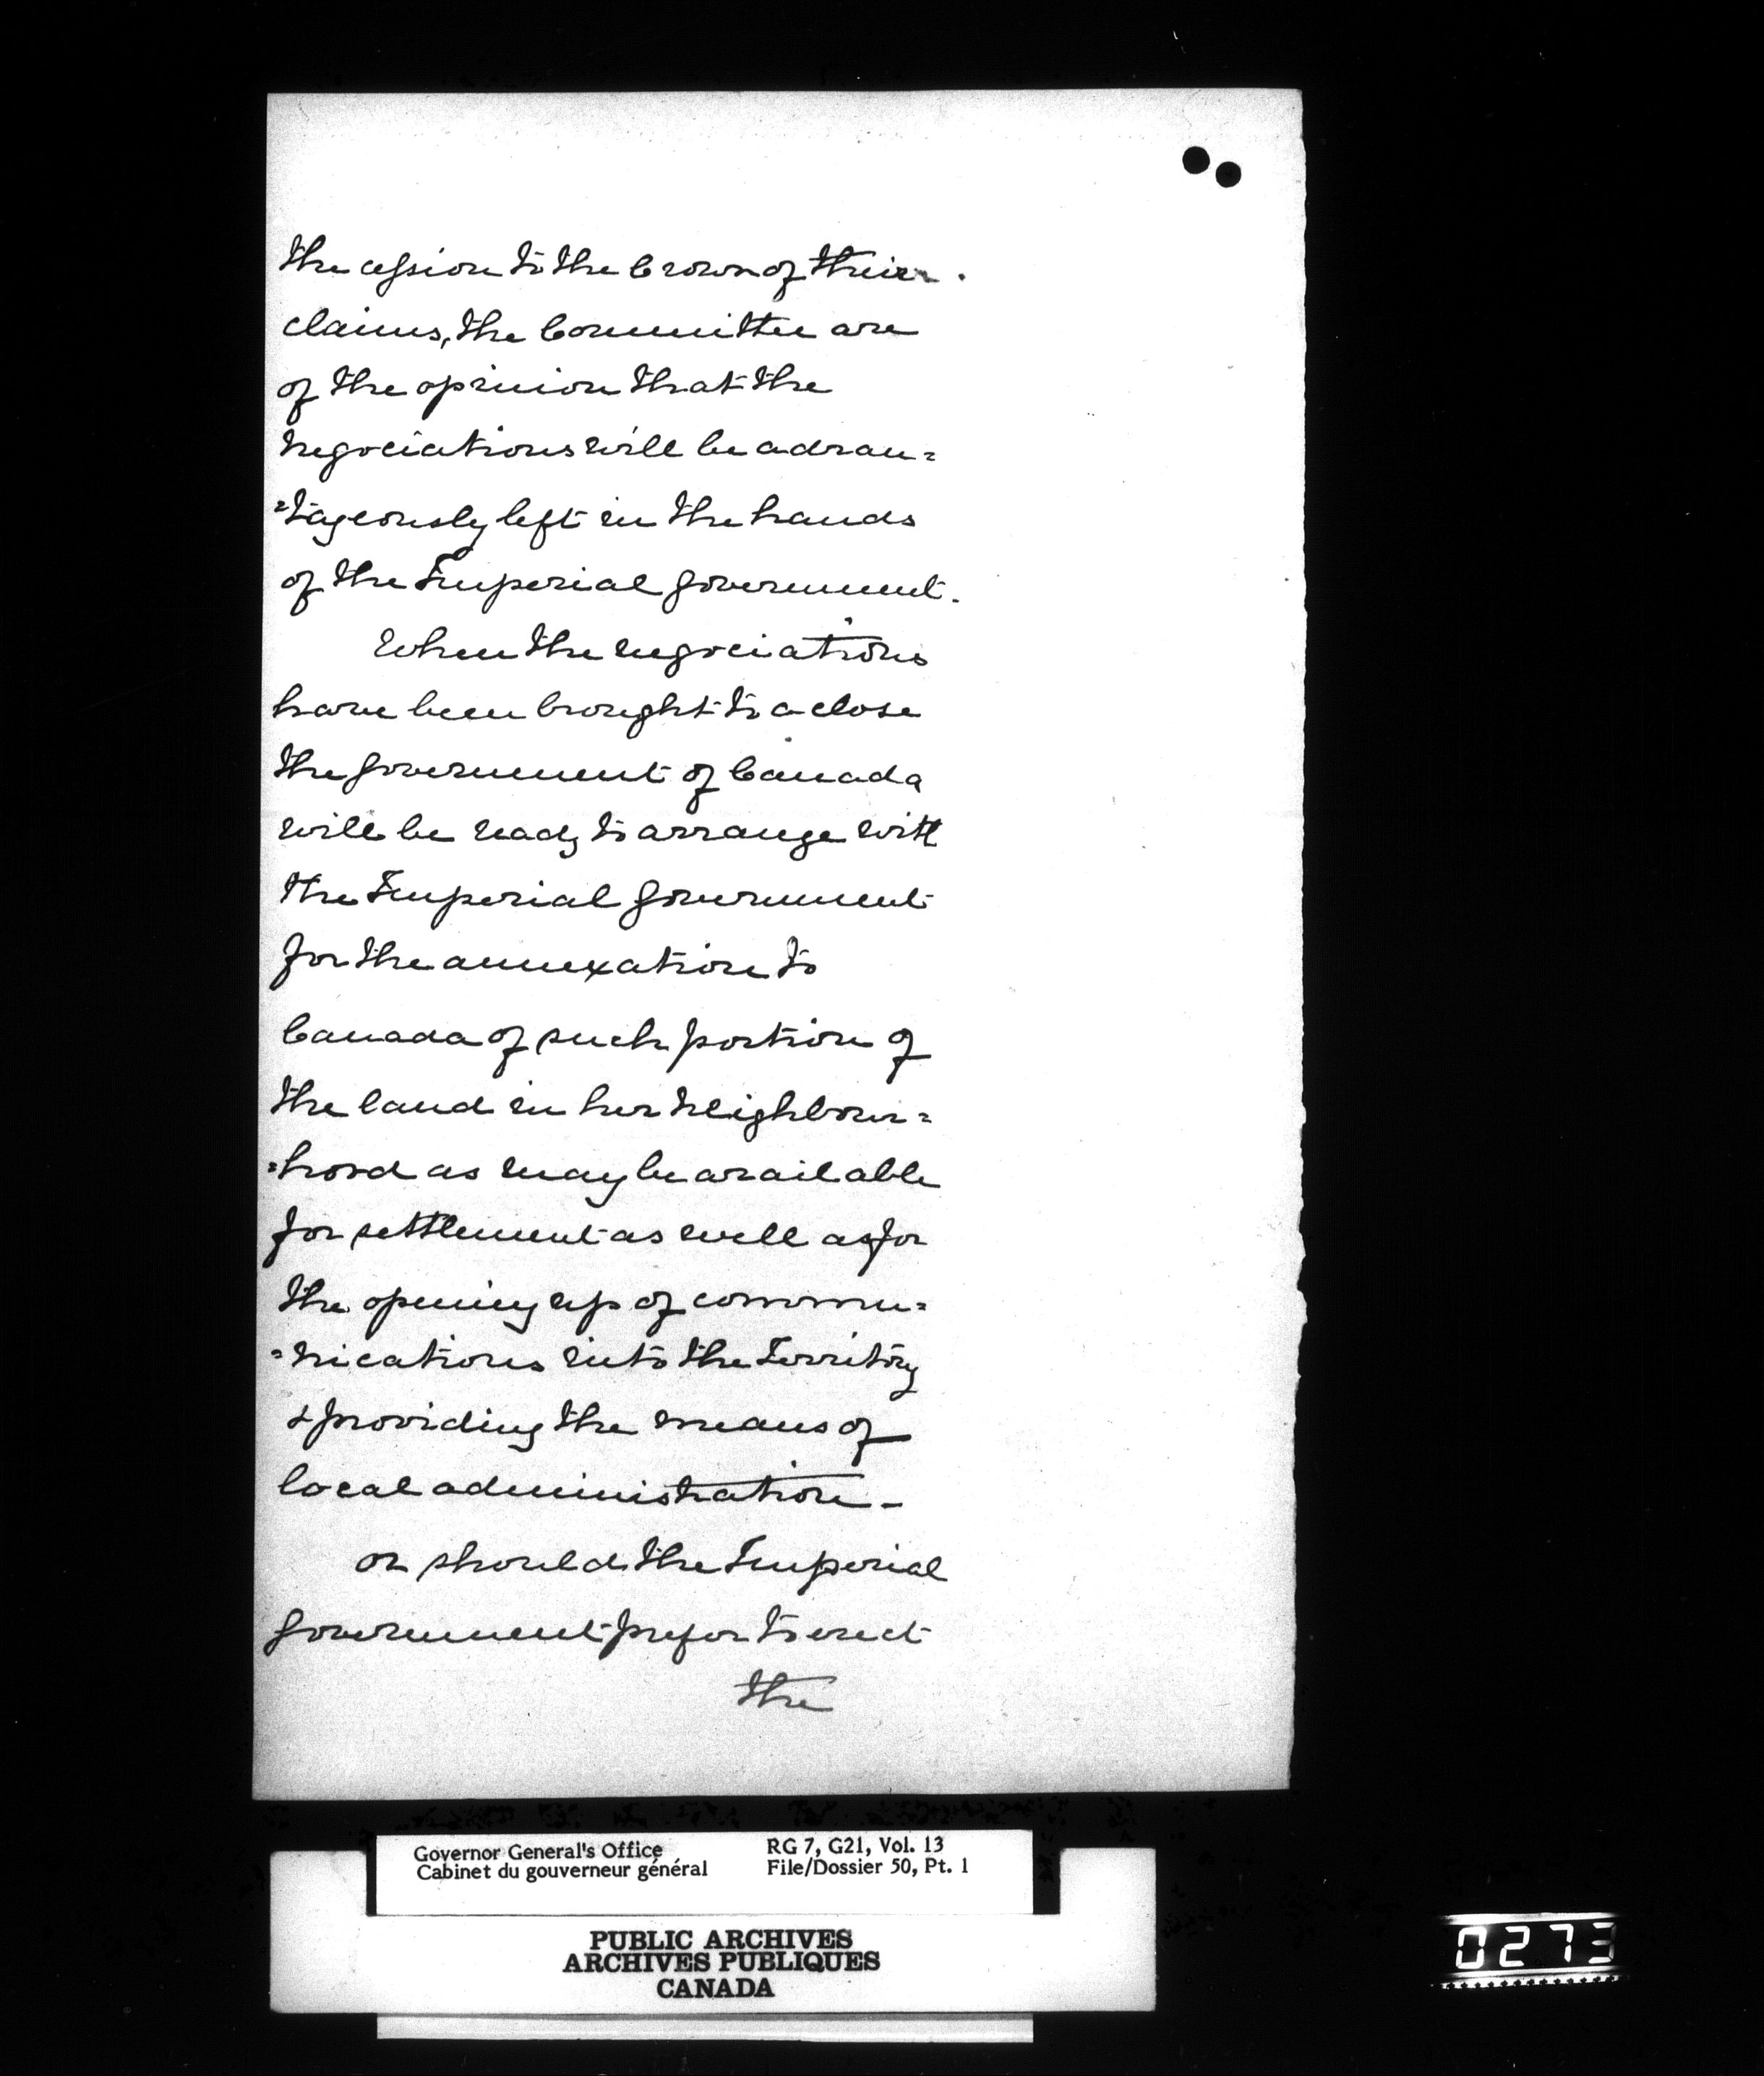 the cession to the Crown of their
claims, the Committee are
of the opinion that the
negociations will be advan=
=tageously left in the hands
of the Imperial Government.
When the negociations
have been brought to a close
the Government of Canada
will be ready to arrange with
the Imperial Government
for the annexation to
Canada of such portion of
the land in her neighbour=
=hood as may be available
for settlement as well as for
the opening up of commu=
=nications into the Territory
& providing the means of
local administration -
or should the Imperial
Government prefer to erect
the
Governor General's Office RG 7, G21, Vol. 13
Cabinet du gouverneur général File/Dossier 50, Pt. 1
PUBLIC ARCHIVES
ARCHIVES PUBLIQUES
CANADA
0273